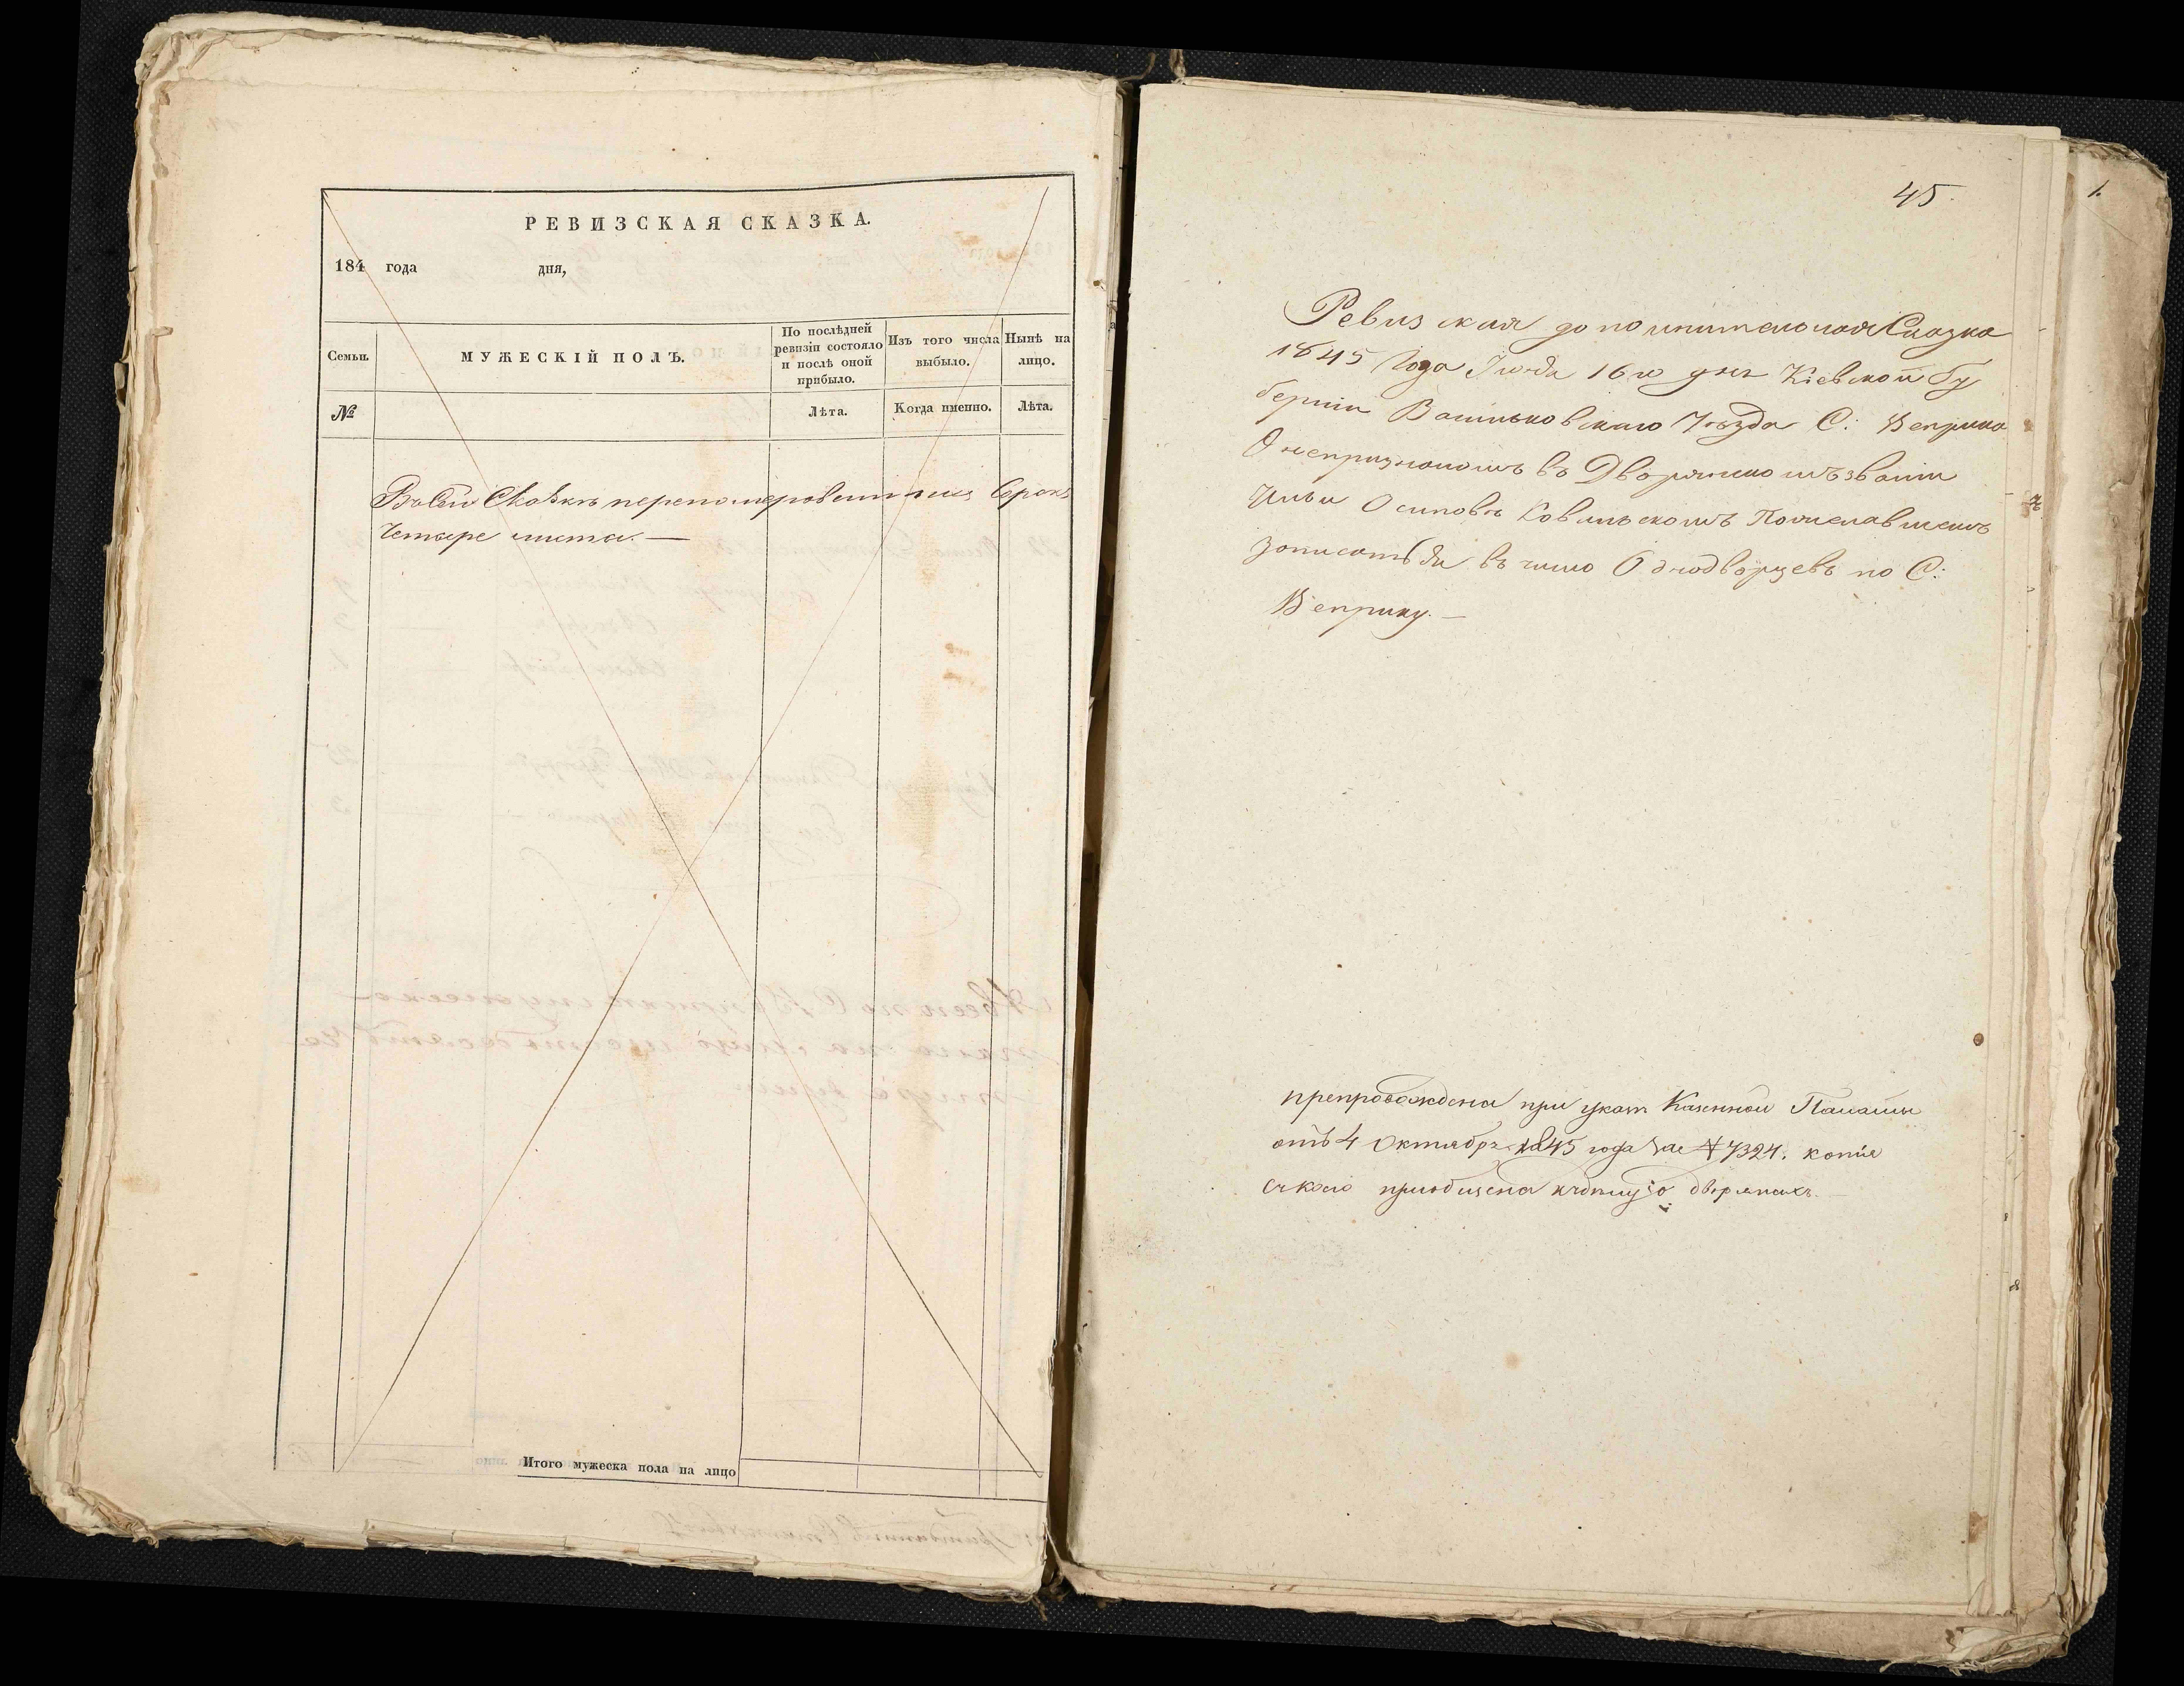 РЕВИЗСКАЯ СКАЗКА.
184 года дня,
Семьи.
МУЖЕСКІЙ ПОЛЪ.
По послѣдней
ревизіи состояло
и послѣ оной
прибыло.
Изъ того числа
выбыло.
Нынѣ на
лицо.
№
Лѣта.
Когда именно.
Лѣта.
Въ сей Сказкѣ перенумерованныхъ Сорокъ
Четыре листа. —
Итого мужеска пола на лицо
45.
Ревизская дополнительная Сказка
1845 Года 16го дня Кіевской Гу
берніи Васильковскаго Уѣзда С: Веприка
О непризнаномъ въ Дворянскомъ званіи
Ильи Осиповѣ Пожелавшемъ
записаться въ число Однодворцевъ по С:
Веприку. —
препровождена при указѣ Казенной Палаты
отъ 4 Октября 1845 года за № 7324. копія
съ коего пріобщена къ дѣлу о дворянахъ. —
1.